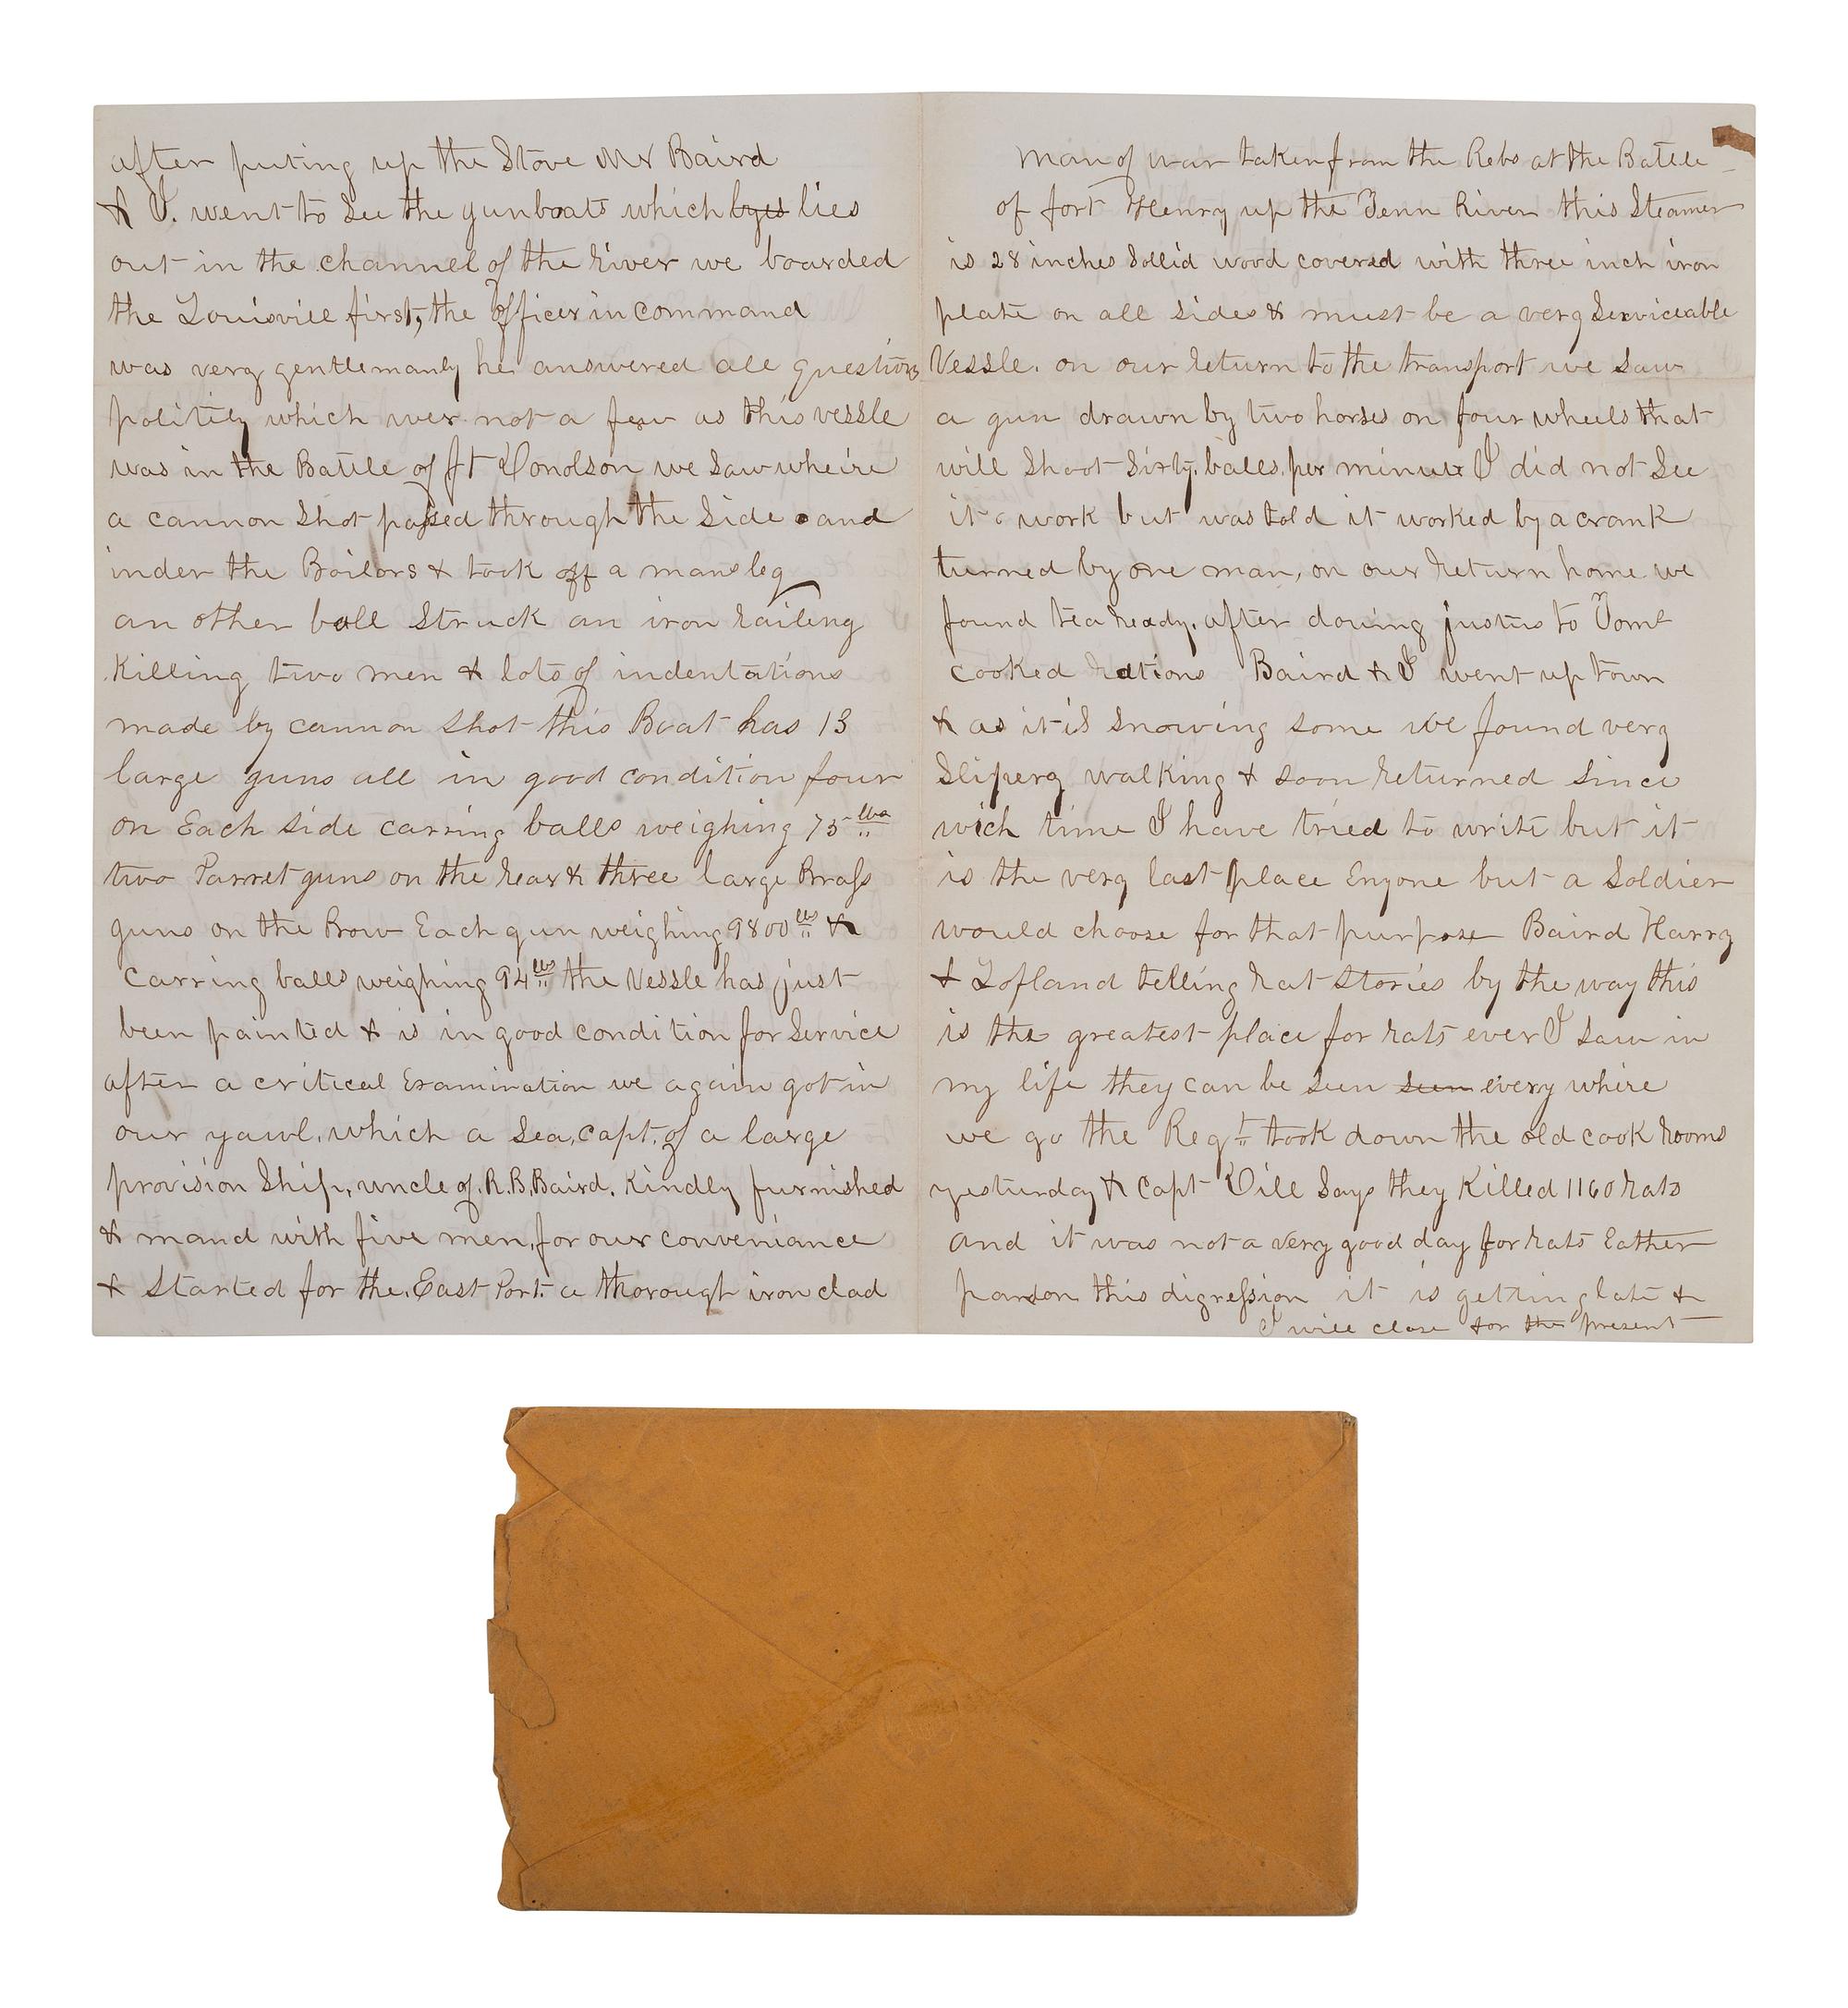 after puting up the Stove Mr Baird
& I. went to See the gunboats which lies
out in the channel of the River we boarded
the Louisvill first, the officer in command
was very gentlemanly he answered all questions
politily which wer not a few as this vessle
was in the Battle of ft Donolson we Saw wheire
a cannon Shot passed through the Side and
inder the Boilors & took off a mans leg
an other ball Struck an iron Railing
Killing two men & lots of indentations
made by cannon Shot this Boat has 13
large guns all in good condition four
on Each Side carring balls weighing 75 lbs
two Parret guns on the Rear & three large Brass
guns on the Brow Each gun weighing 9800 lbs &
carring balls weighing 94 lbs the Vessle has just
been painted & is in good condition for Service
after a critical Examination we again got in
our yawl, which a Sea, capt. of a large
provision Ship, uncle of R.B. Baird, Kindly furnished
& mand with five men, for our conveniance
& Started for the East Port a thorough iron clad
man of war taken from the Rebs at the Battle
of fort Henry up the Tenn River this Steamer
is 28 inches Sollid wood covered with three inch iron
plate on all Sides & must be a very Serviceable
Vessle. on our Return to the transport we Saw
a gun drawn by two horses on four wheels that
will Shoot Sixty balls per minute I did not See
it work but was told it worked by a crank
turned by one man, on our Return home we
found tea Ready. after douing justis to
cooked Rations Baird & I went up town
& as it is Snowing some we found very
Slipery walking & soon Returned Since
wich time I have tried to write but it
is the very last place Enyone but a Soldier
would choose for that purpose Baird Harry
& Lofland telling Rat Stories by the way this
is the greatest place for Rats ever I Saw in
my life they can be Seen seen every where
we go the Regt took down the old cook Rooms
yesturday & Capt Dill Says they Killed 1160 Rats
and it was not a very good day for Rats Eather
pardon this digression it is getting late &
I will close for the present